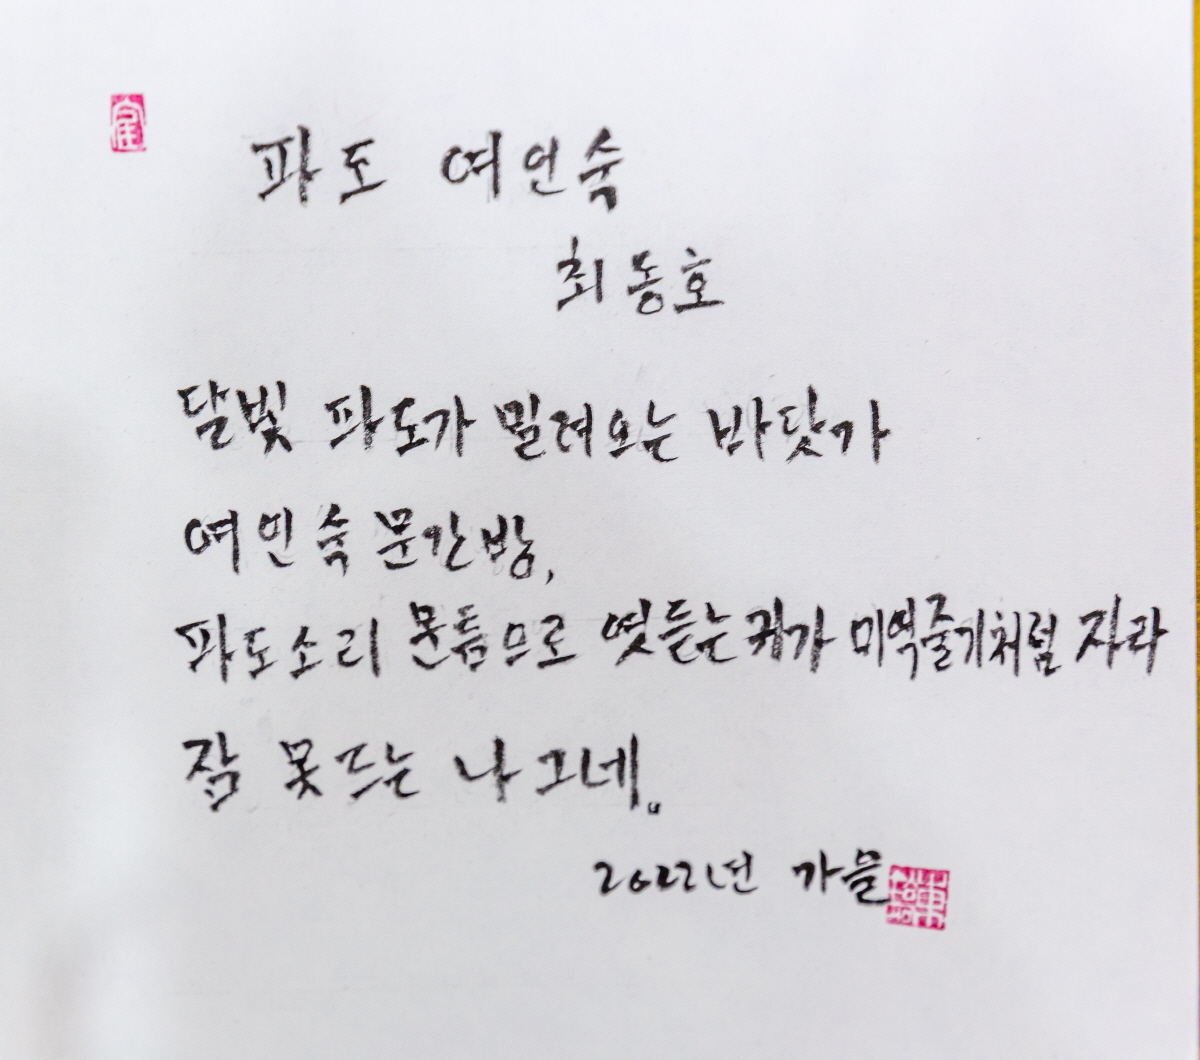 파도 여인숙
최동호
달빛 파도가 밀려오는 바닷가
여인숙 문간방,
파도소리 문틈으로 엿듣는 귀가 미역줄기처럼 자라
잠 못드는 나그네.
2022년 가을